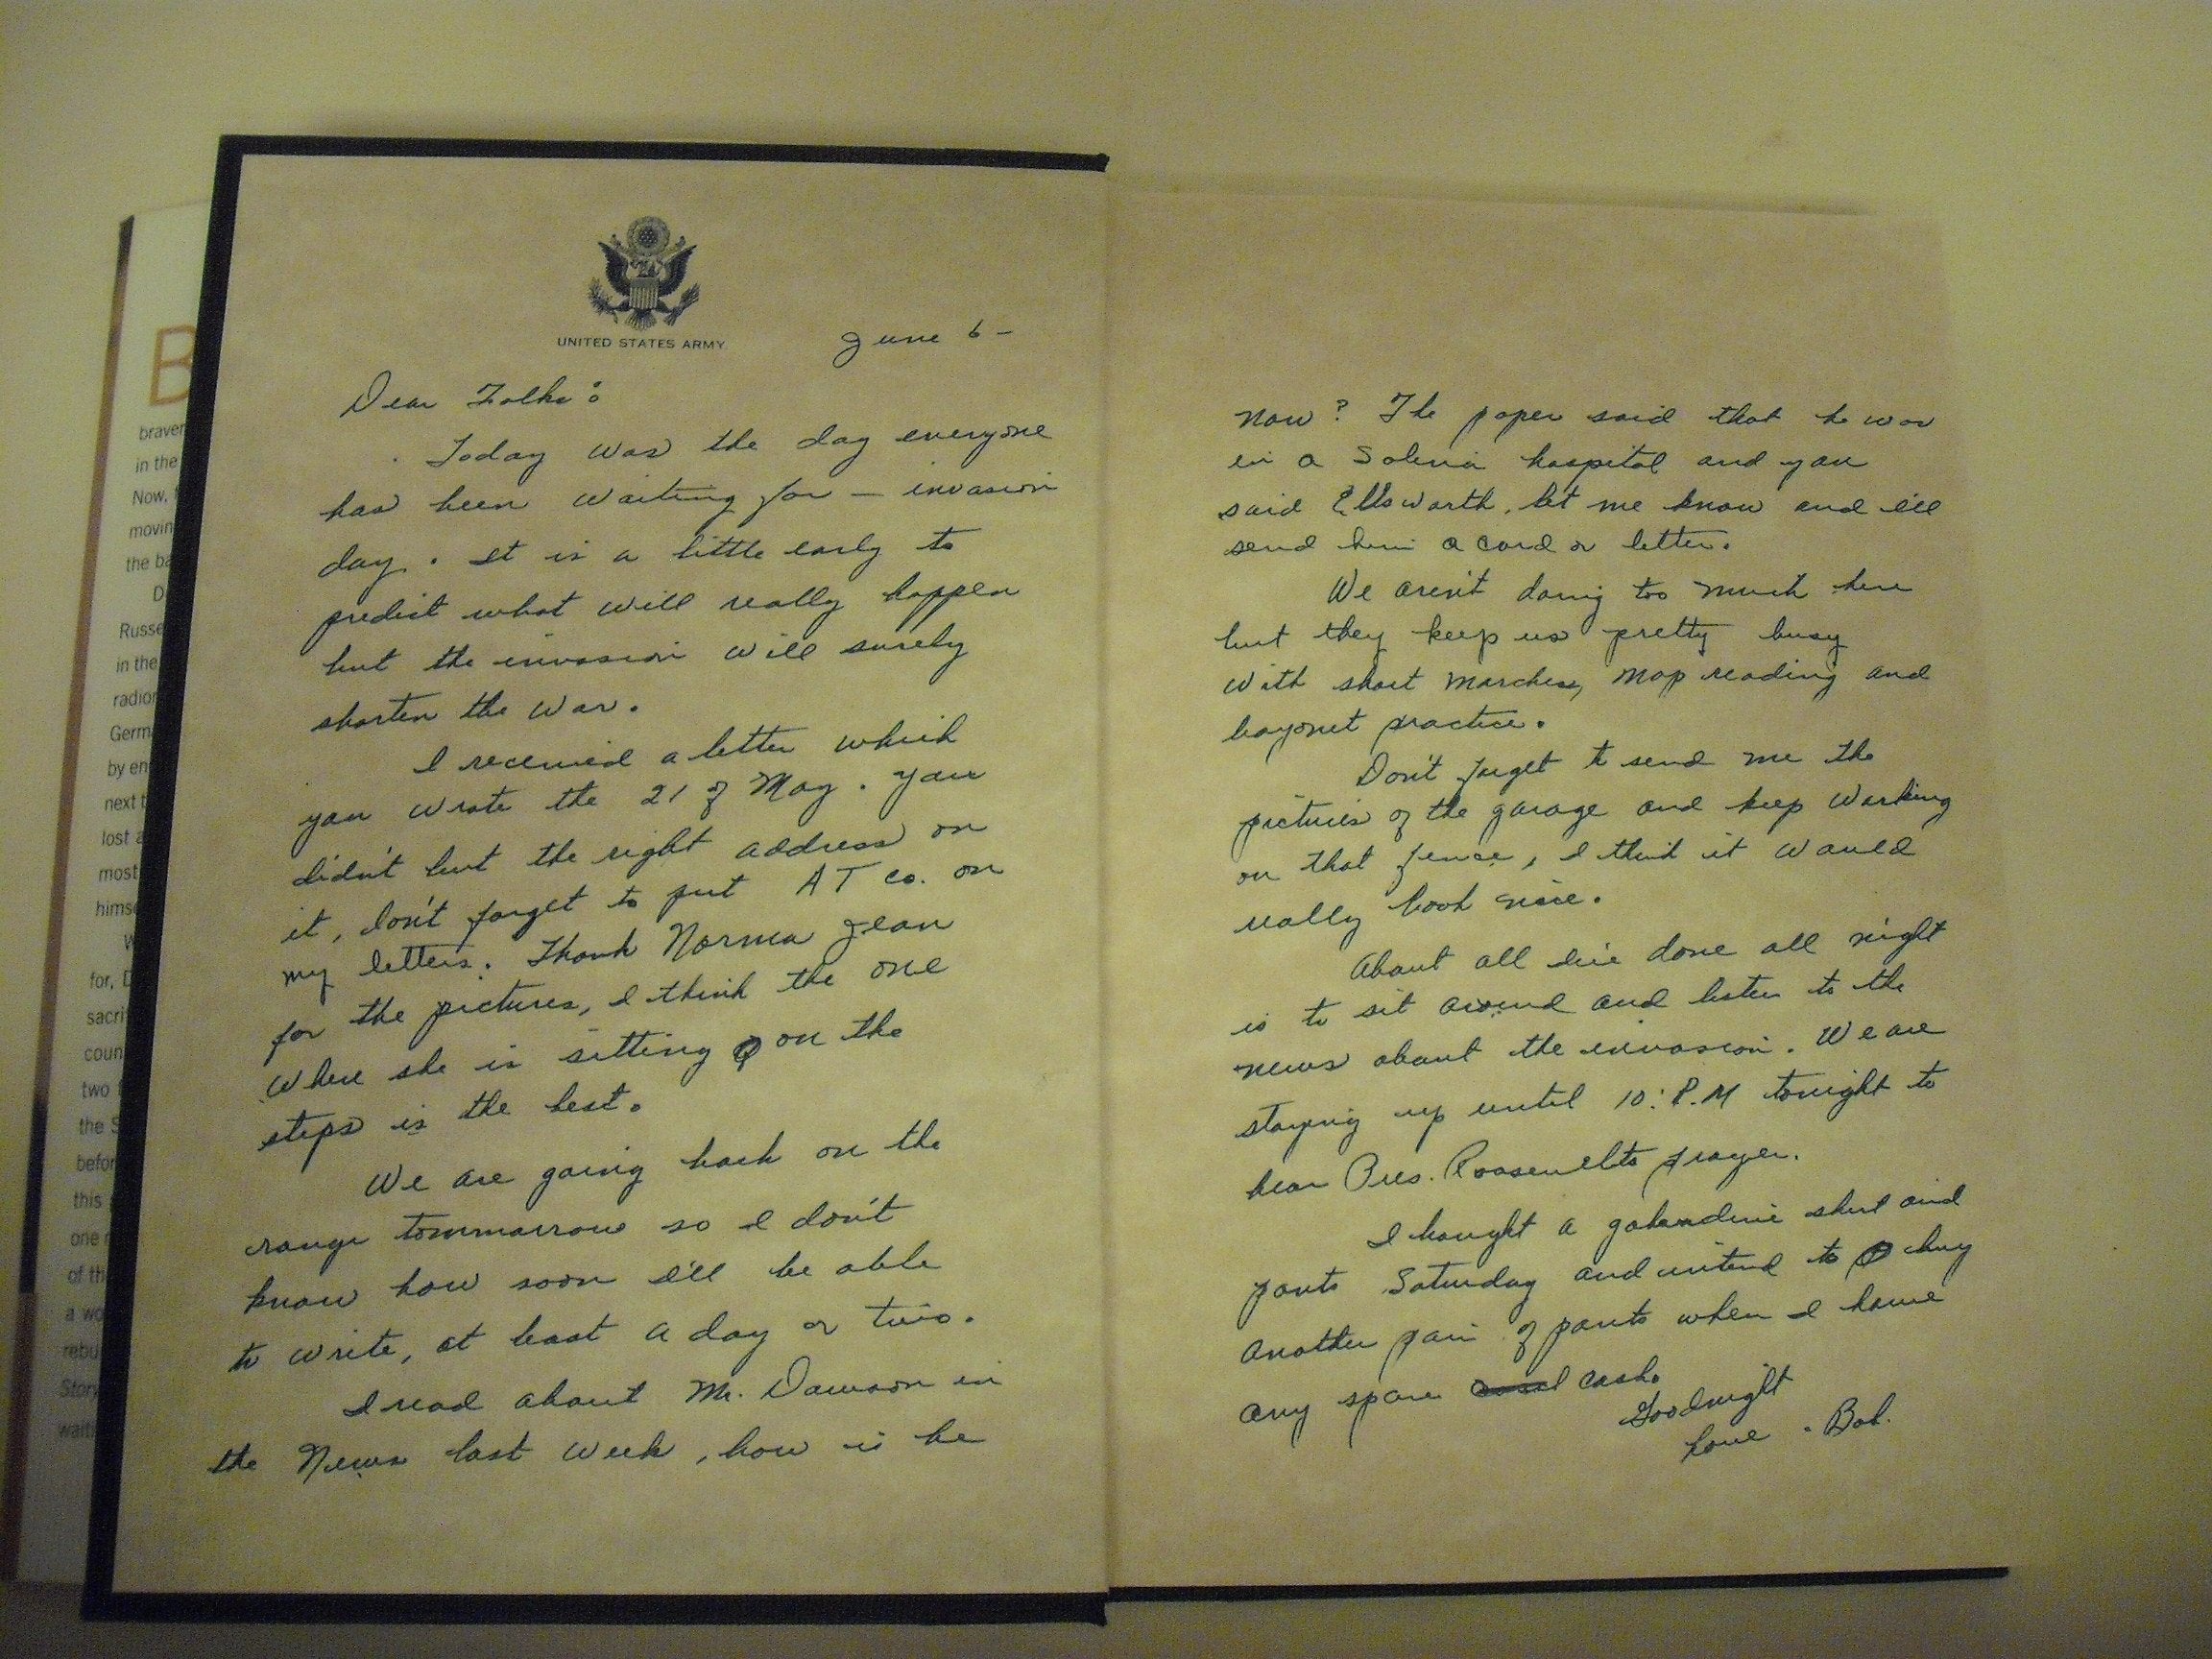 B
braver
in the
Now,
movin
the ba
D
Russe
in the
radio
Germ
by en
next t
lost a
most
himse
W
for, D
sacri
coun
two
the S
befor
this
one
of th
a wo
rebu
Story
waiti
UNITED STATES ARMY
June 6 -
Dear Folks:
Today was the day everyone
has been waiting for - invasion
day. It is a little early to
predict what will really happen
but the invasion will surely
shorten the war.
I received a letter which
you wrote the 21 of May. You
didn't put the right address on
it, don't forget to put AT Co. on
my letters. Thank Norma Jean
for the pictures, I think the one
where she is sitting on the
steps is the best.
We are going back on the
range tommarrow so I don't
know how soon I'll be able
to write, at least a day or two.
I read about Mr. Dawson in
the News last week, how is he
now? The paper said that he was
in a Salina hospital and you
said Ellsworth, let me know and I'll
send him a card or letter.
We aren't doing too much here
but they keep us pretty busy
with short marches, map reading and
bayonet practice.
Don't forget to send me the
pictures of the garage and keep working
on that fence, I think it would
really look nice.
About all I've done all night
is to sit around and listen to the
news about the invasion. We are
staying up until 10:P.M tonight to
hear Pres. Roosevelts prayer.
I bought a gabardine shirt and
pants Saturday and intend to buy
another pair of pants when I have
any spare cash.
Goodnight
Love - Bob.